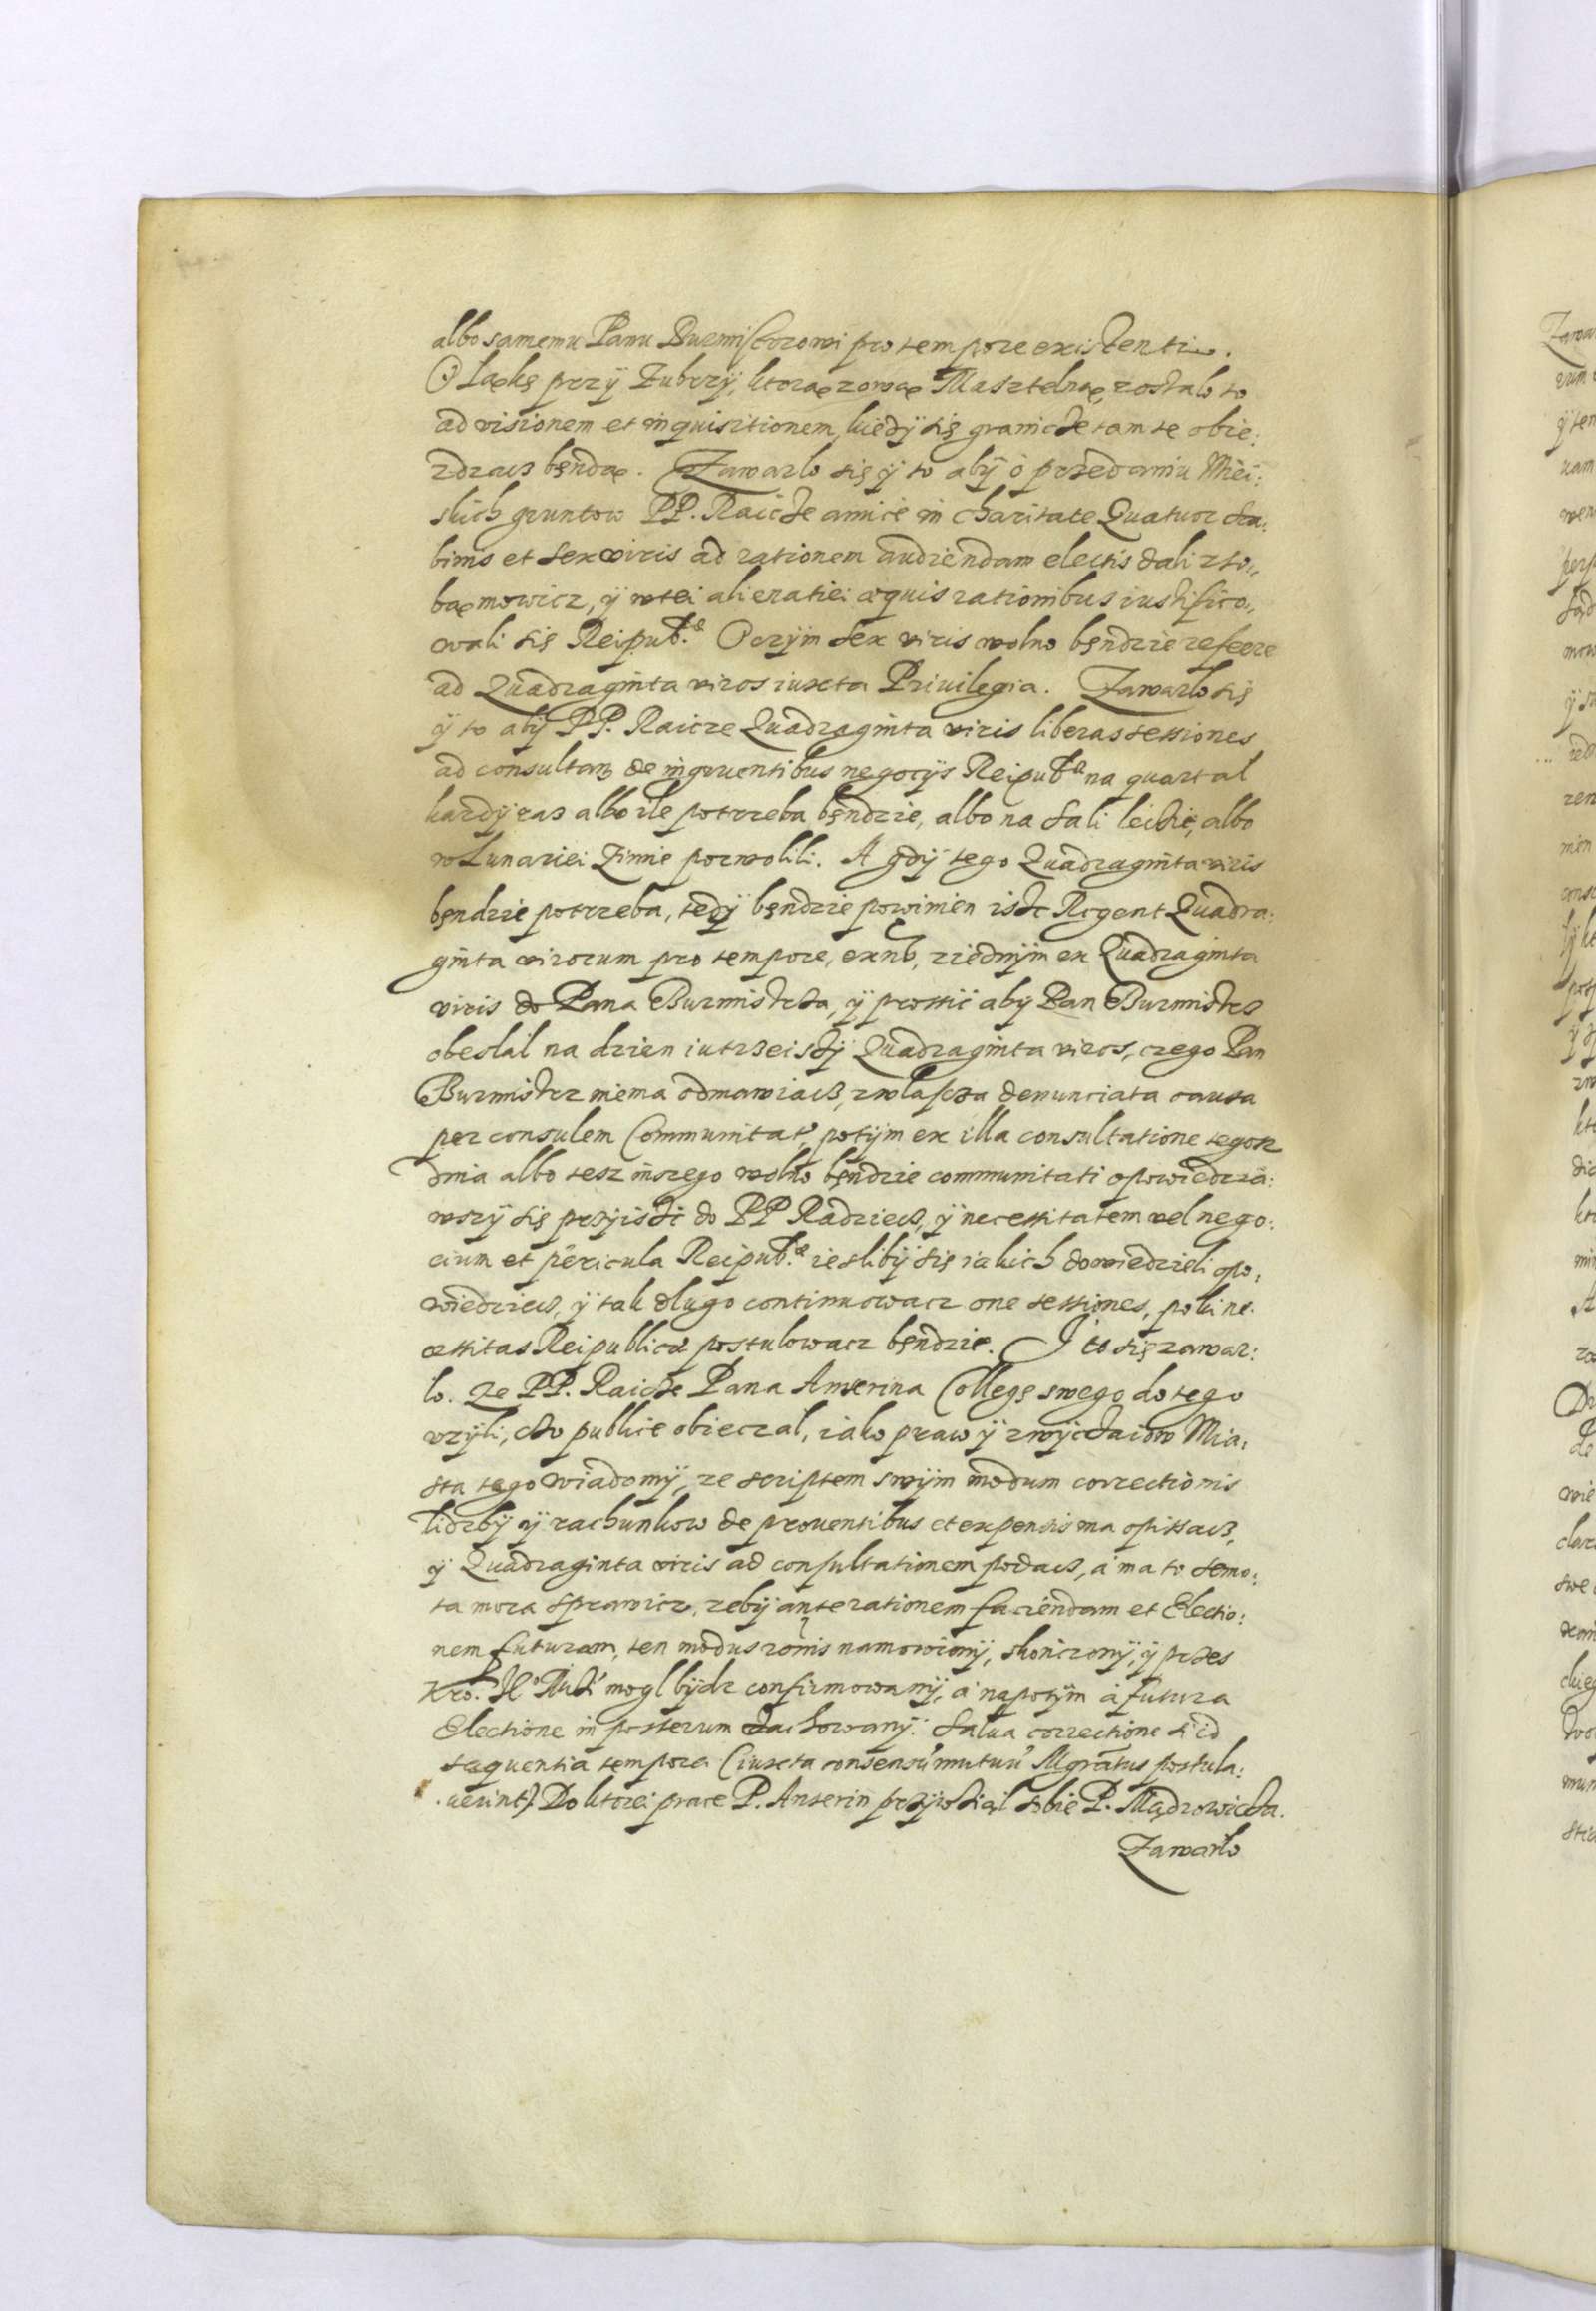 albo samemu Panu Burmistrzowi pro tempore existenti.
O Łąkę przÿ Zubrzÿ, ktorą zową Masztelną, zostało to
ad visionem et inquisitionem, kiedÿ się granicze tamte obie:
zdzacz będą. Zawarlo się ÿ to abÿ o przedaniu Miei:
skich gruntow PP. Raicze amice in charitate Quatuor Sca:
binis et sexviris ad rationem audiendam electis dali z so,,
bą mowicz, ÿ w tei alienatiei æquis rationibus iustifico,,
wali się Reipub:æ O czÿm sex viris wolno będzie referre
ad Quadraginta viros iuxta Privilegia. Zawarlo się
ÿ to abÿ PP. Raicze Quadraginta viris liberas sessiones
ad consultan de ingruentibus negocÿs Reipubæ na quartal
kazdÿ raz albo ile potrzeba będzie, albo na Sali lecie, albo
w Lunariei Zimie pozwolili. A gdÿ tego Quadraginta viris
będzie potrzeba, tedÿ będzie powinien iść Regent Quadra:
ginta virorum pro tempore, exnc, z iednÿm ex Quadraginta
viris do Pana Burmistrza, ÿ prossic abÿ Pan Burmistrz
obeslal na dzien iutrzeiszÿ Quadraginta viros, czego Pan
Burmistrz niema odmawiacz, zwlascza denunciata causa
per consulem Communitati, potÿm ex illa consultatione tegosz
dnia albo tesz inszego wolno będzie communitati opowiedzia:
wszÿ się przÿiść do PP Radziecz, ÿ necessitatem vel nego:
cium et pericula Reipub:æ iesliby się iakich dowiedzieli opo,
wiedziecz, ÿ tak dlugo continuowacz one sessiones, poki ne
cessitas Reipublicæ postulowacz będzie. I to się zawar:
lo. Ze PP. Raicze Pana Anserina Collegę swego do tego
uzÿli, cżo publice obieczal, iako praw ÿ zwÿczaiow Mia,
sta tego wiadomÿ, ze scriptem swÿm modum correctionis
liczbÿ ÿ rachunkow de proventibus et expensis ma opissacz,
ÿ Quadraginta viris ad consultationem podacz, a ma to semo:
ta mora sprawicz, zebÿ ante rationem faciendam et Electio:
nem futuram, ten modus ronis namowionÿ, skonczonÿ, ÿ przes
Kro: Je° Mści mogl bÿdz confirmowanÿ, a napotÿm a futura
Electione in posterum zachowanÿ. Salva correctione si id
sequentia tempora (iuxta consensu mutuu Mgratus postula:
verint). Do ktorei prace P. Anserin przÿwział sobie P. Mądrowicza.
Zawarlo